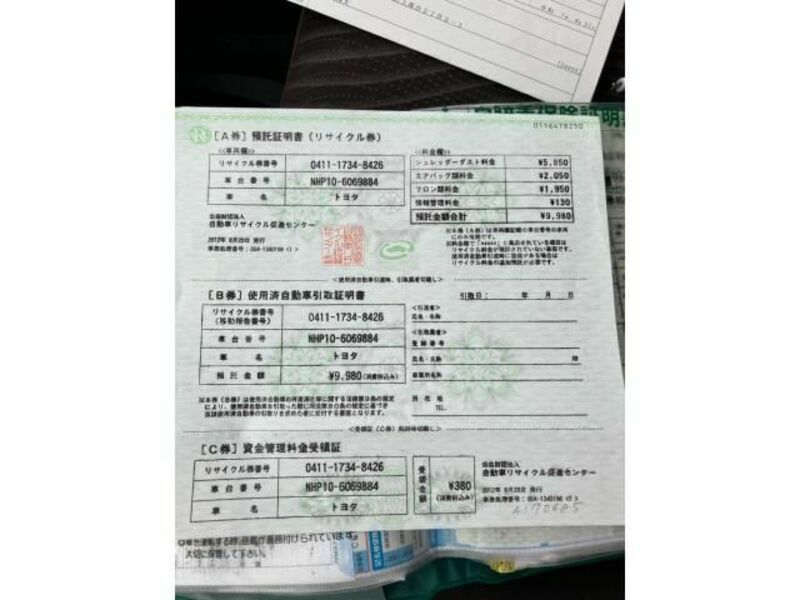 0116478250
[A券] 預託証明書 (リサイクル券)
≪車両欄≫
リサイクル券番号 0411-1734-8426
車台番号 NHP10-6069884
車名 トヨタ
公益財団法人
自動車リサイクル促進センター
2012年 6月28日 発行
≪料金欄≫
シュレッダーダスト料金 ¥5,850
エアバッグ類料金 ¥2,050
フロン類料金 ¥1,950
情報管理料金 ¥130
預託金額合計 ¥9,980
[B券] 使用済自動車引取証明書
引取日: 年 月 日
リサイクル券番号
(移動報告番号) 0411-1734-8426
車台番号 NHP10-6069884
車名 トヨタ
預託金額 ¥9,980(消費税込み)
<引渡者>
氏名・名称
<引取業者>
登録番号
氏名・名称
事業所名称
所在地
TEL.
[C券] 資金管理料金受領証
リサイクル券番号 0411-1734-8426
車台番号 NHP10-6069884
車名 トヨタ
受領金額 ¥380
(消費税込み)
公益財団法人
自動車リサイクル促進センター
2012年 6月28日 発行
大切に保管して下さい。